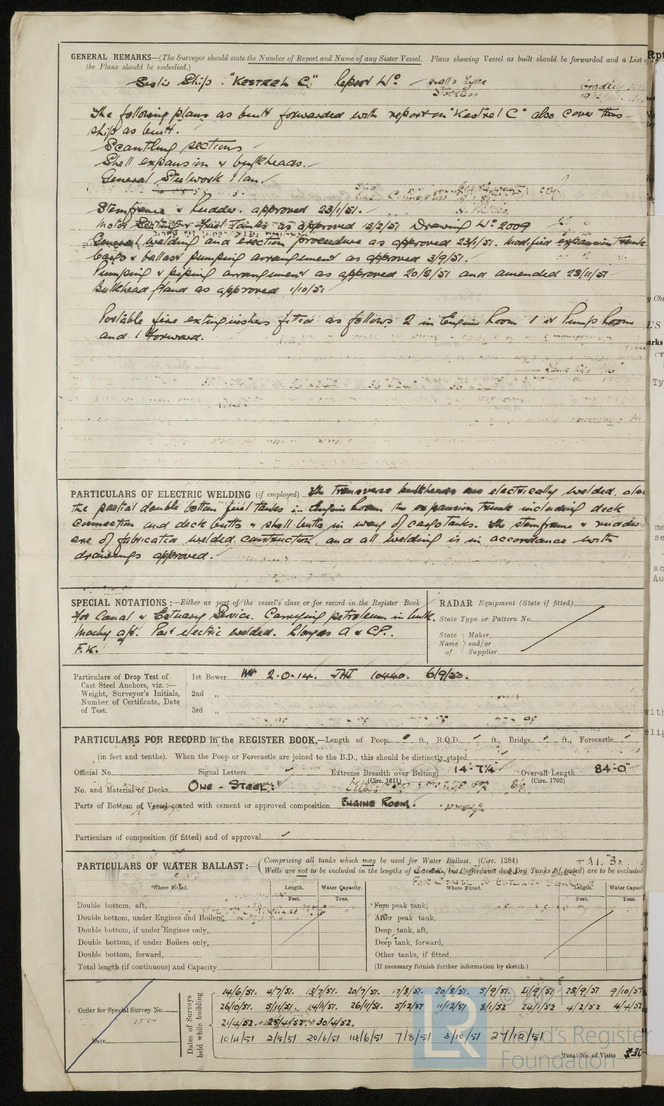 GENERAL REMARKS—(The Surveyor should state the Number of Report and Name of any Sister Vessel. Plans showing Vessel as built should be forwarded and a List
the Plans should be embodied.)
Sister Ship. "KESTREL C." Report No.
The following plans as built forwarded with report on "Kestrel C" also cover this
ship as built.
Scantling sections
Shell expansion & bulkheads.
General Steelwork Plan.
Sternframe & rudder. approved 23/1/51.
Motor Seating & Fuel Tanks as approved 12/2/51 Drawing No. 2009
General welding and erection procedure as approved 23/1/51. Modified expansion trunk
Cargo & ballast pumping arrangement as approved 3/9/51.
Pumping & piping arrangement as approved 20/8/51 and amended 28/11/51
Bulkhead gland as approved 1/10/51
Portable fire extinguishers fitted as follows 2 in Engine Room 1 in Pump Room
and 1 forward.
PARTICULARS OF ELECTRIC WELDING (if employed) The transverse bulkheads are electrically welded, also
the partial double bottom fuel tanks in Engine Room, the expansion trunk including deck
connection and deck butts & shell butts in way of cargo tanks. The sternframe & rudder
are of fabricated welded construction, and all welding is in accordance with
drawings approved.
SPECIAL NOTATIONS:—Either as part of the vessel's class or for record in the Register Book
For Canal & Estuary Service. Carrying petroleum in bulk.
Machy aft. Part electric welded. Lloyds A & CP.
F.K.
RADAR Equipment (State if fitted)
State Type or Pattern No.
State Name of Maker and/or Supplier
Particulars of Drop Test of
Cast Steel Anchors, viz.:—
Weight, Surveyor's Initials,
Number of Certificate, Date
of Test.
1st Bower 2-0-14. 10440. 6/9/50.
2nd "
3rd "
PARTICULARS FOR RECORD in the REGISTER BOOK.—Length of Poop ft., R.Q.D. ft., Bridge ft., Forecastle
(in feet and tenths). When the Poop or Forecastle are joined to the B.D., this should be distinctly stated
Official No. Signal Letters Extreme Breadth over Belting 14'-7¼" Over-all Length 84'-0"
(Circ. 1611) (Circ. 1703)
No. and Material of Decks ONE - STEEL
Parts of Bottom of Vessel coated with cement or approved composition ENGINE ROOM.
Particulars of composition (if fitted) and of approval
PARTICULARS OF WATER BALLAST:— (Comprising all tanks which may be used for Water Ballast. (Circ. 1284)
Wells are not to be included in the lengths of but Cofferdams and Dry Tanks (if tested) are to be included
Where Fitted. Length. Water Capacity. Where Fitted. Length. Water Capacity
Feet. Tons. Feet. Tons.
Double bottom, aft, Fore peak tank,
Double bottom, under Engines and Boilers, After peak tank,
Double bottom, if under Engines only, Deep tank, aft,
Double bottom, if under Boilers only, Deep tank, forward,
Double bottom, forward, Other tanks, if fitted,
Total length (if continuous) and Capacity (If necessary furnish further information by sketch.)
Order for Special Survey No.
Date
Dates of Surveys held while building
14/6/51. 4/7/51. 13/7/51. 20/7/51. 17/8/51. 20/8/51. 5/9/51. 21/9/51. 28/9/51 9/10/51
26/10/51. 5/11/51. 14/11/51. 26/11/51. 5/12/51 11/12/51. 8/1/52 24/1/52 4/2/52 4/4/52
21/4/52. 25/4/52. 30/4/52.
10/4/51 2/5/51 20/6/51 14/6/51 7/8/51 3/10/51 27/12/51
Total No. of Visits 30
LR
© 2021
Lloyd's Register
Foundation